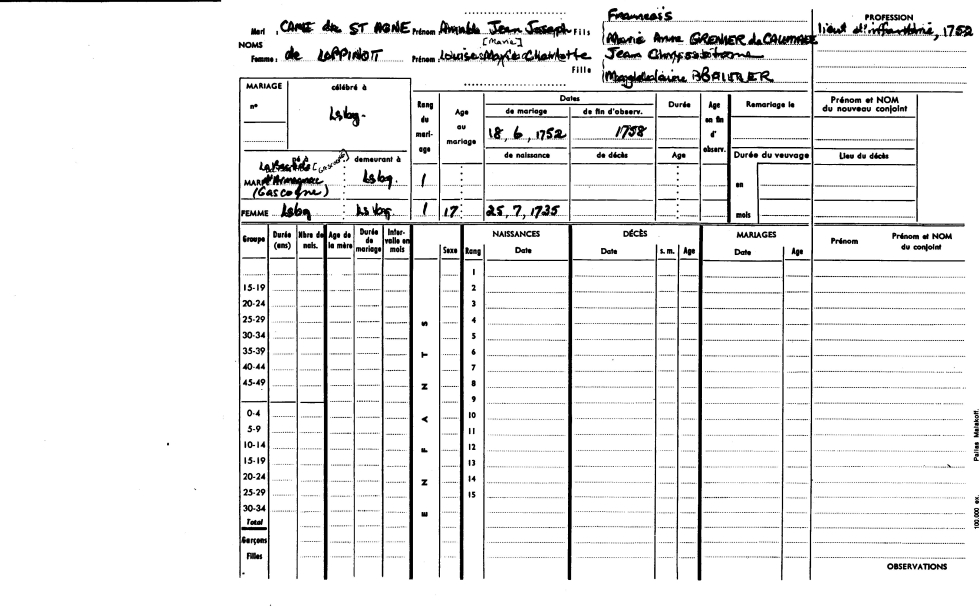 Français
PROFESSION
Mari : CAME de ST AGNE Prénom Amable Jean Joseph Fils
lieut d'infanterie, 1752
[Marie]
Marie Anne GRENIER de
NOMS
Jean Chrysostome
Femme : de LOPPINOT Prénom : Louise Charlotte
Fille
MARIAGE
n°
célébré à
Lsbg.
Rang du mari- age
Age au mariage
Dates
de mariage
de fin d'observ.
18, 6, 1752
1758
de naissance
de décès
Durée
Age
Age en fin d' observ.
Remariage le
Durée du veuvage
en
mois
Prénom et NOM du nouveau conjoint
Lieu du décès
né à
demeurant à
MARI d'Armagnac (Gascogne)
Lsbg
1
FEMME Lsbg
Lsbg.
1
17
25, 7, 1735
Groupe
Durée (ans)
Nbre de nais.
Age de la mère
Durée de mariage
Inter- valle en mois
ENFANTS
Sexe
Rang
NAISSANCES
Date
DÉCÈS
Date
s. m.
Age
MARIAGES
Date
Age
Prénom
Prénom et NOM du conjoint
1
15-19 2
20-24 3
25-29 4
30-34 5
35-39 6
40-44 7
45-49 8
9
0-4 10
5-9 11
10-14 12
15-19 13
20-24 14
25-29 15
30-34
Total
Garçons
Filles
OBSERVATIONS
100,000 ex. Malakoff.